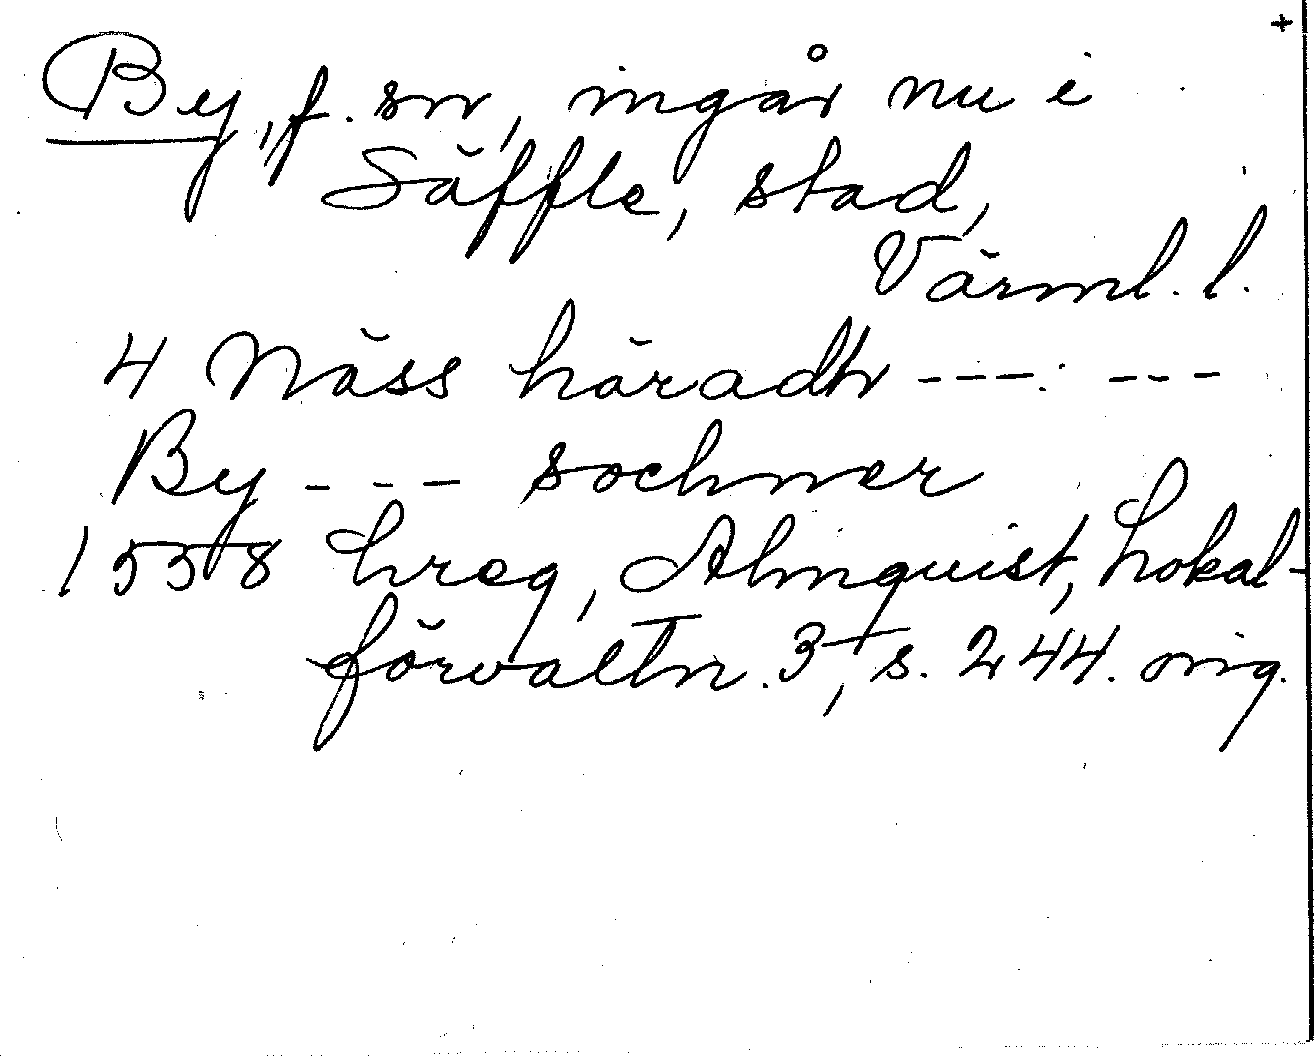 +
By, f. sn, ingår nu i
Säffle, stad,
Värml. l.
4 Näss häradh --- ---
By --- sochner
1558 hreg, Almquist, Lokal-
förvaltn. 3, s. 244. orig.